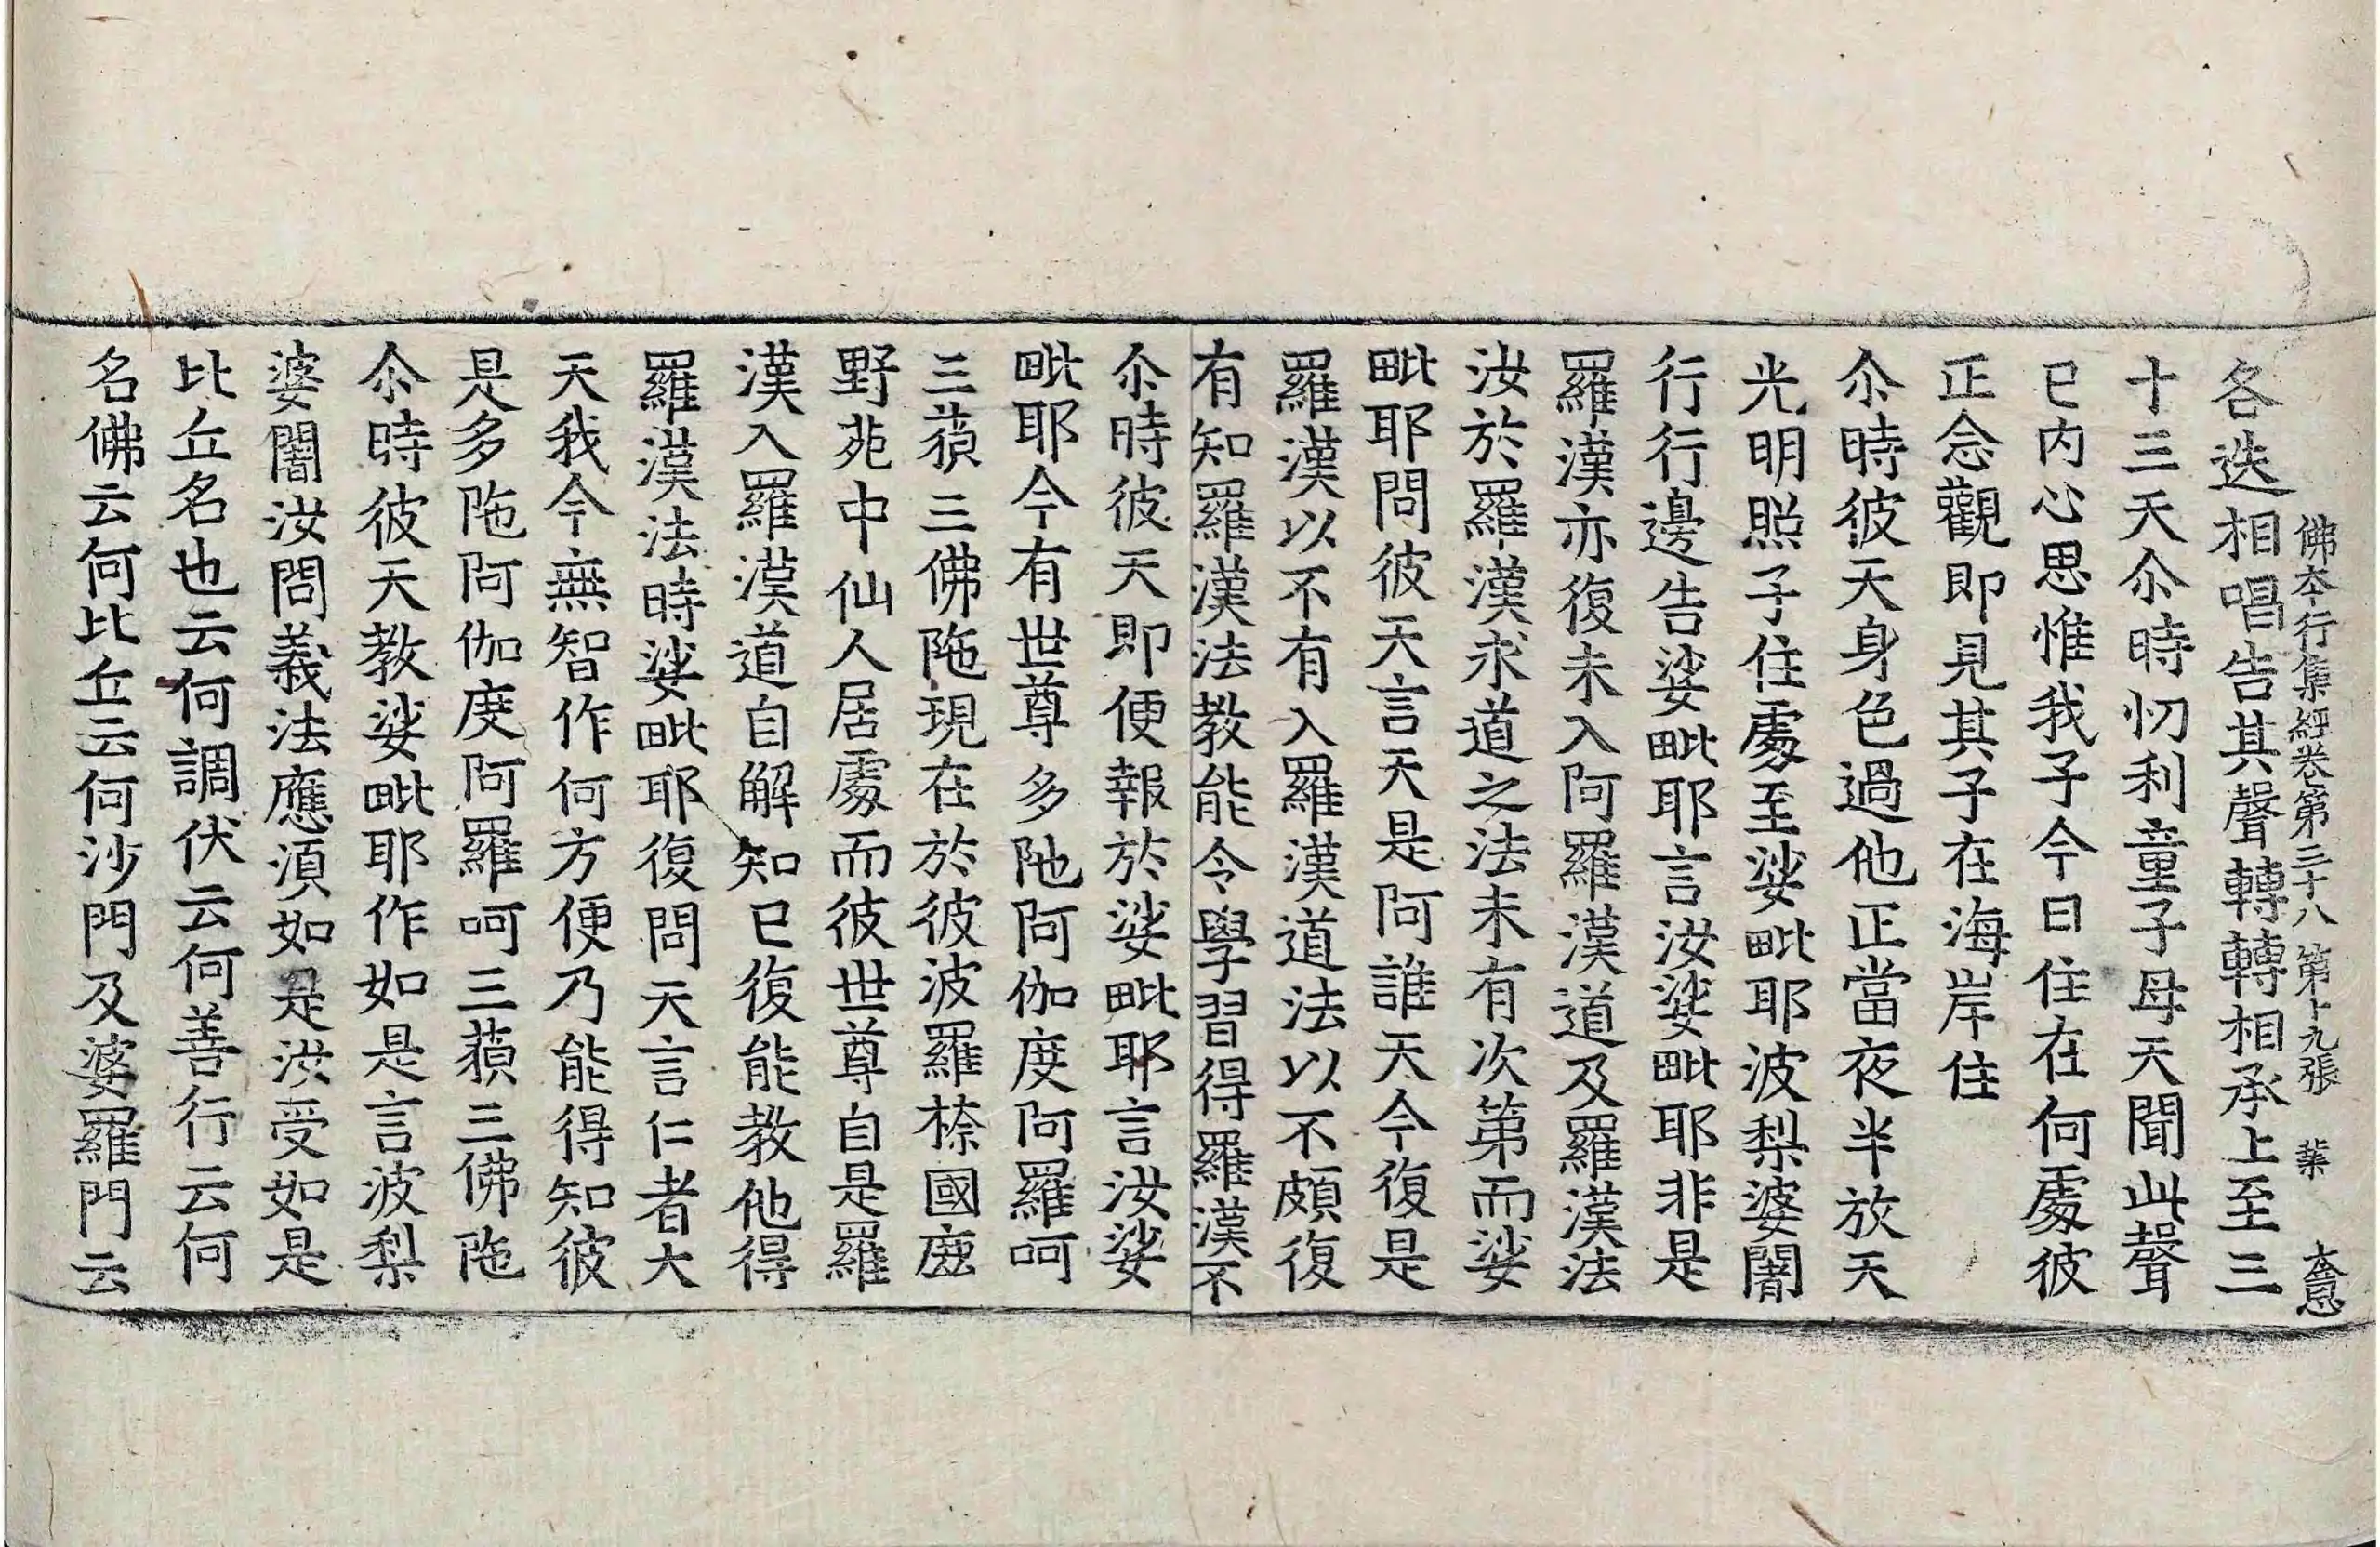 佛本行集經卷第三十八 第十九張 業 大忌
各迭相唱告其聲轉轉相承上至三
十三天尒時忉利童子母天聞此聲
已內心思惟我子今日住在何處彼
正念觀即見其子在海岸住
尒時彼天身色過他正當夜半放天
光明照子住處至娑毗耶波梨婆闍
行行邊告娑毗耶言汝娑毗耶非是
羅漢亦復未入阿羅漢道及羅漢法
汝於羅漢求道之法未有次第而娑
毗耶問彼天言天是阿誰天今復是
羅漢以不有入羅漢道法以不頗復
有知羅漢法教能令學習得羅漢不
尒時彼天即便報於娑毗耶言汝娑
毗耶今有世尊多陁阿伽度阿羅呵
三藐三佛陁現在於彼波羅㮈國鹿
野苑中仙人居處而彼世尊自是羅
漢入羅漢道自解知已復能教他得
羅漢法時娑毗耶復問天言仁者大
天我今無智作何方便乃能得知彼
是多陁阿伽度阿羅呵三藐三佛陁
尒時彼天教娑毗耶作如是言波梨
婆闍汝問義法應須如是汝受如是
比丘名也云何調伏云何善行云何
名佛云何比丘云何沙門及婆羅門云